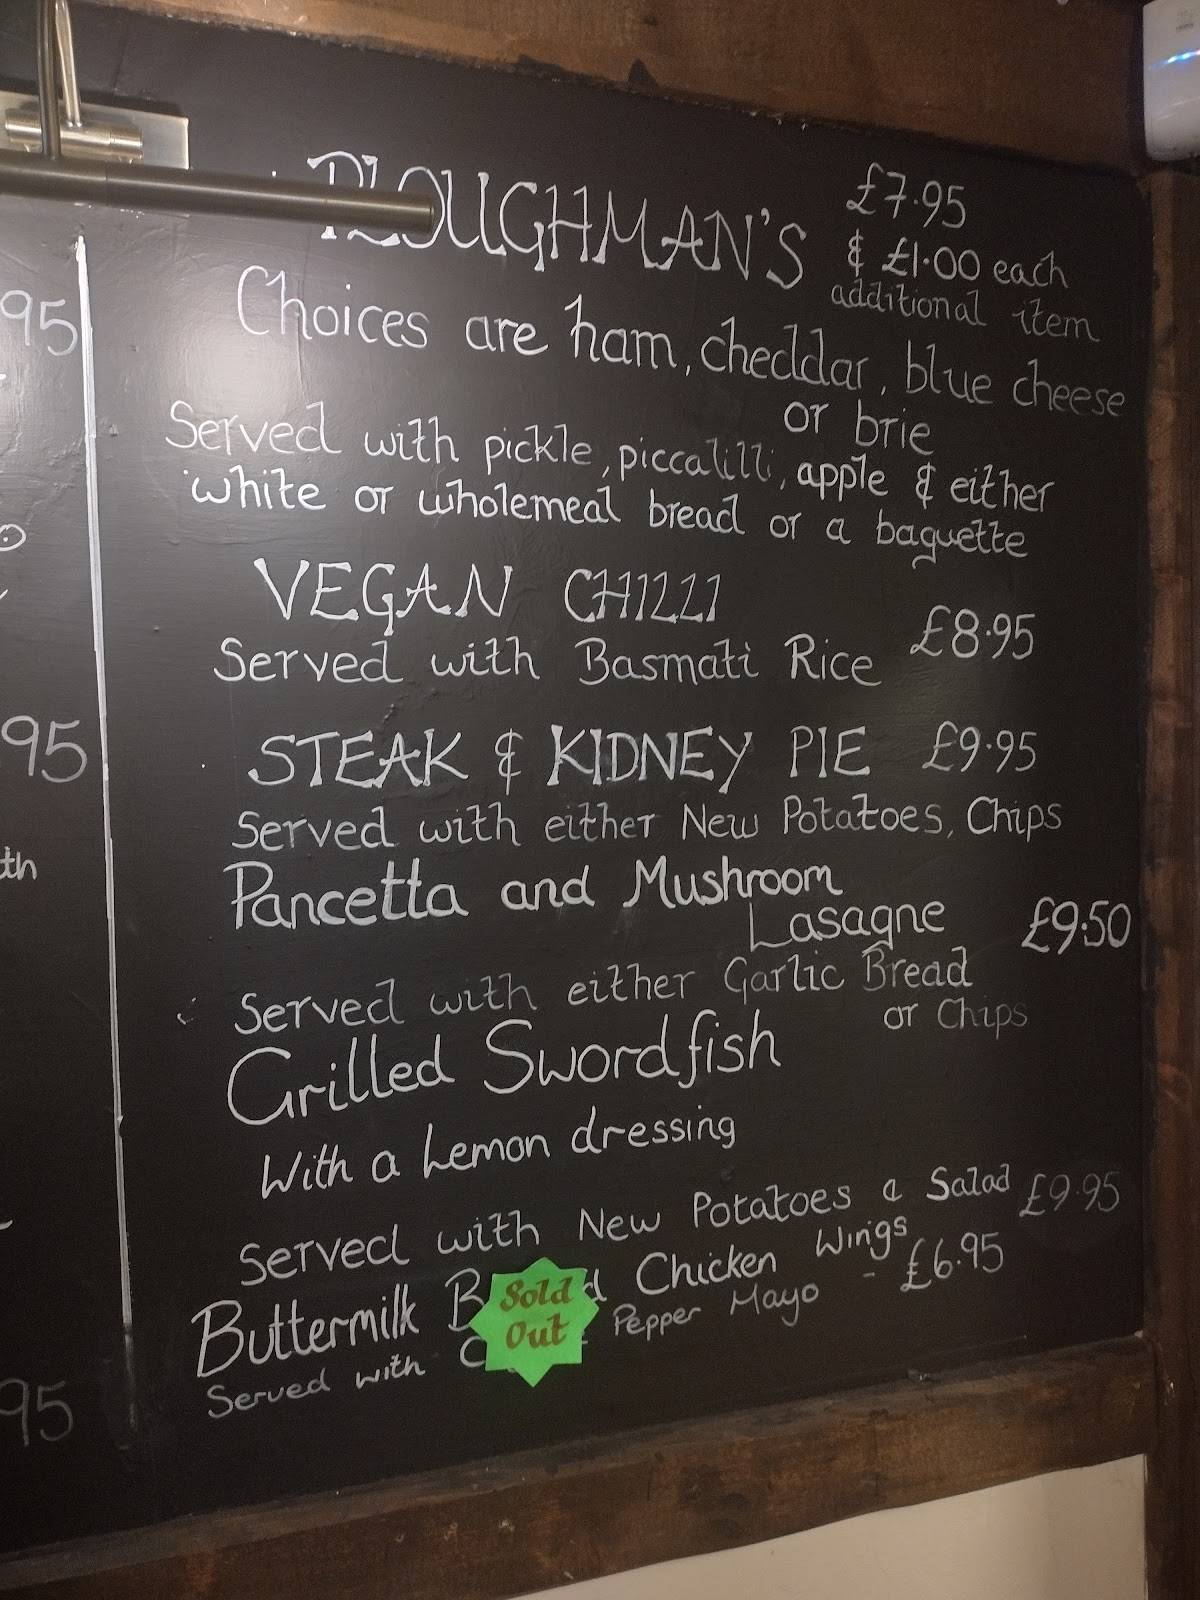 PLOUGHMAN'S £7.95
& £1.00 each
additional item
Choices are ham, cheddar, blue cheese
or brie
Served with pickle, piccalilli, apple & either
white or wholemeal bread or a baguette
VEGAN CHILLI
Served with Basmati Rice £8.95
STEAK & KIDNEY PIE £9.95
Served with either New Potatoes, Chips
Pancetta and Mushroom
Lasagne £9.50
Served with either Garlic Bread
or Chips
Grilled Swordfish
With a Lemon dressing
Served with New Potatoes & Salad £9.95
Buttermilk Chicken Wings
Served with Pepper Mayo - £6.95
Sold
Out
95
95
th
95